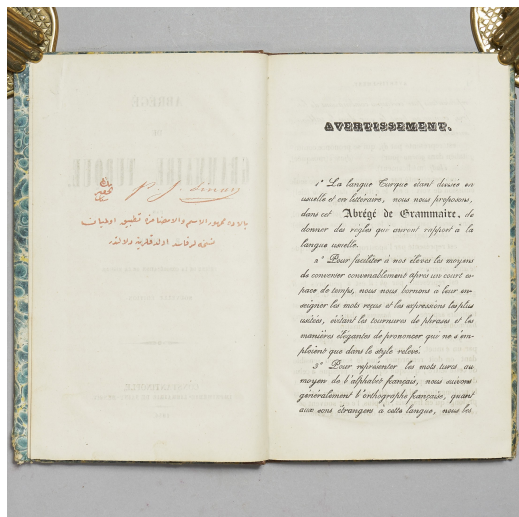 بالاده الاسم تطبيق اولنميان
AVERTISSEMENT.
1° La langue Turque étant divisée en
usuelle et en littéraire, nous nous proposons,
dans cet Abrégé de Grammaire, de
donner des règles qui auront rapport à la
langue usuelle.
2° Pour faciliter à nos élèves les moyens
de converser convenablement après un court es-
pace de temps, nous nous bornons à leur en-
seigner les mots reçus et les expressions les plus
usitées, évitant les tournures de phrases et les
manières élégantes de prononcer qui ne s'em-
ploient que dans le style relevé.
3° Pour représenter les mots turcs au
moyen de l'alphabet français, nous suivons
généralement l'orthographe française, quant
aux sons étrangers à cette langue, nous les